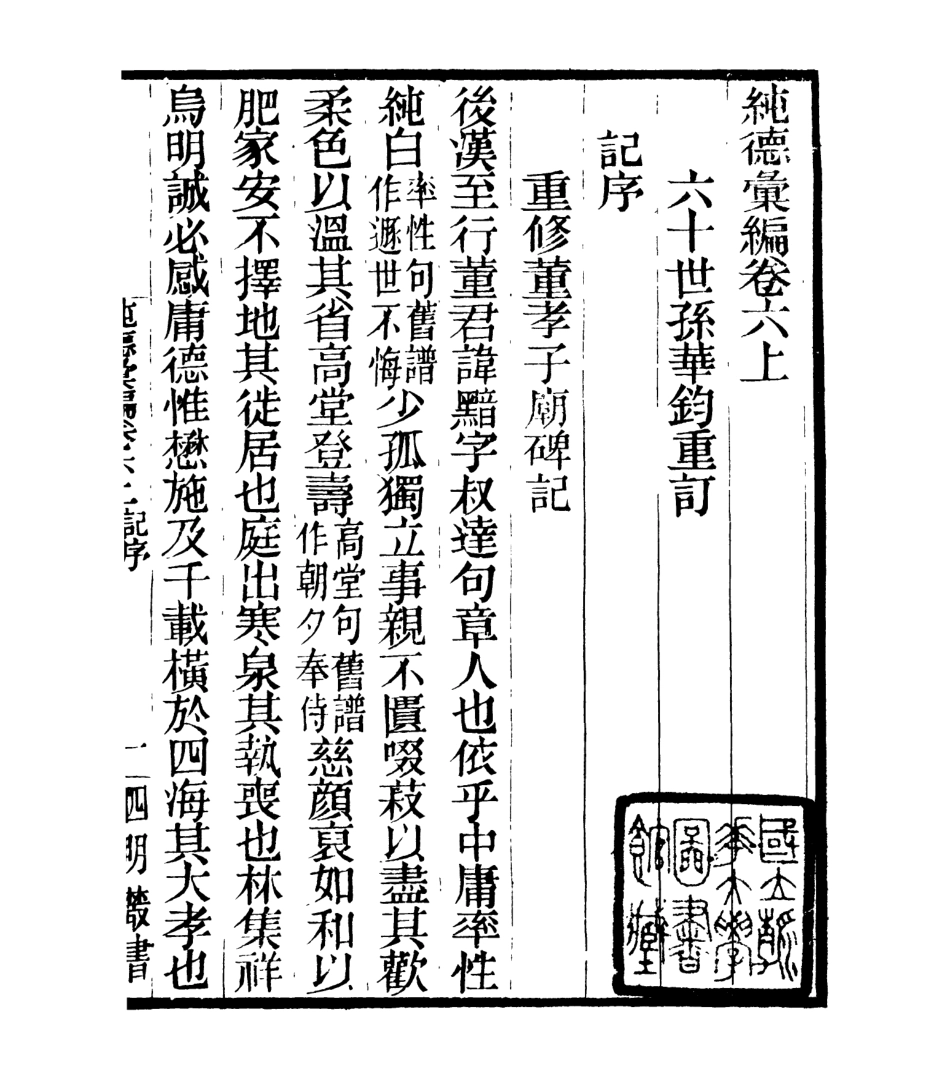 純德彙編卷六上
六十世孫華鈞重訂
記序
重修董孝子廟碑記
後漢至行董君諱黯字叔達句章人也依乎中庸率性
純白率性句舊譜作遯世不悔少孤獨立事親不匱啜菽以盡其歡
柔色以溫其省高堂登壽高堂句舊譜作朝夕奉侍慈顏裒如和以
肥家安不擇地其徙居也庭出寒泉其執喪也林集祥
烏明誠必感庸德惟懋施及千載橫於四海其大孝也
純德彙編卷六上記序
一
四明叢書
國立清華大學圖書館藏